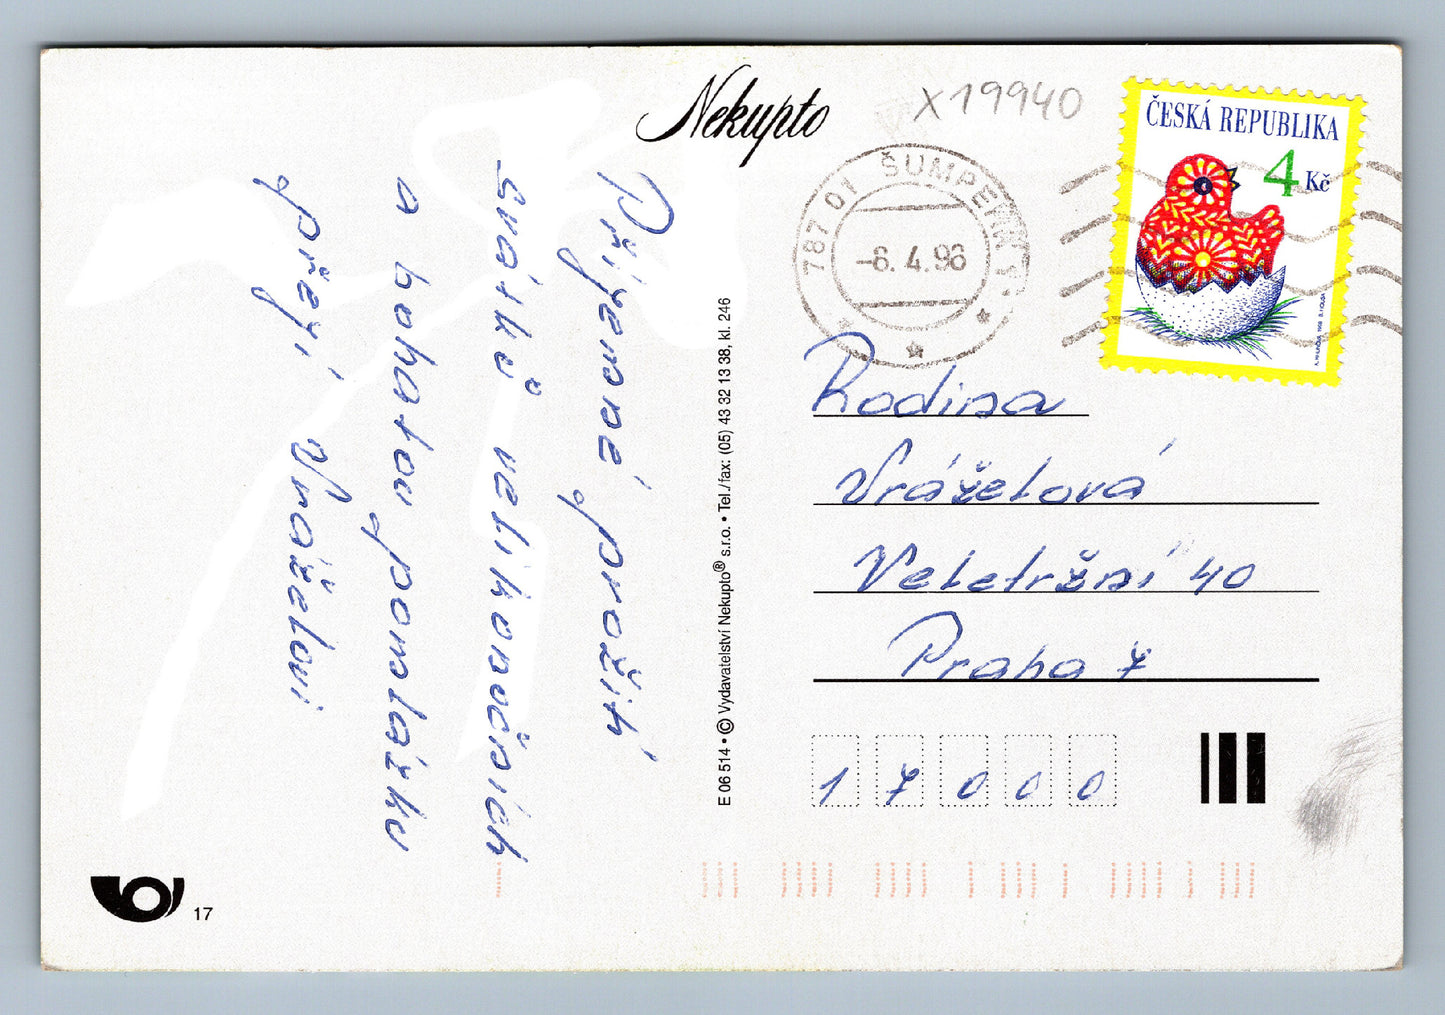 Nekupto
X 19940
ČESKÁ REPUBLIKA
4 Kč
787 01 ŠUMPERK 1
-6.4.98
Příjemné prožití
svátků velikonočních
a bohatou pomlázku
přejí Vráželovi
E 06 514 • © Vydavatelství Nekupto® s.r.o. • Tel./fax: (05) 43 32 13 38, kl. 246
Rodina
Vráželová
Veletržní 40
Praha 7
1 7 0 0 0
17